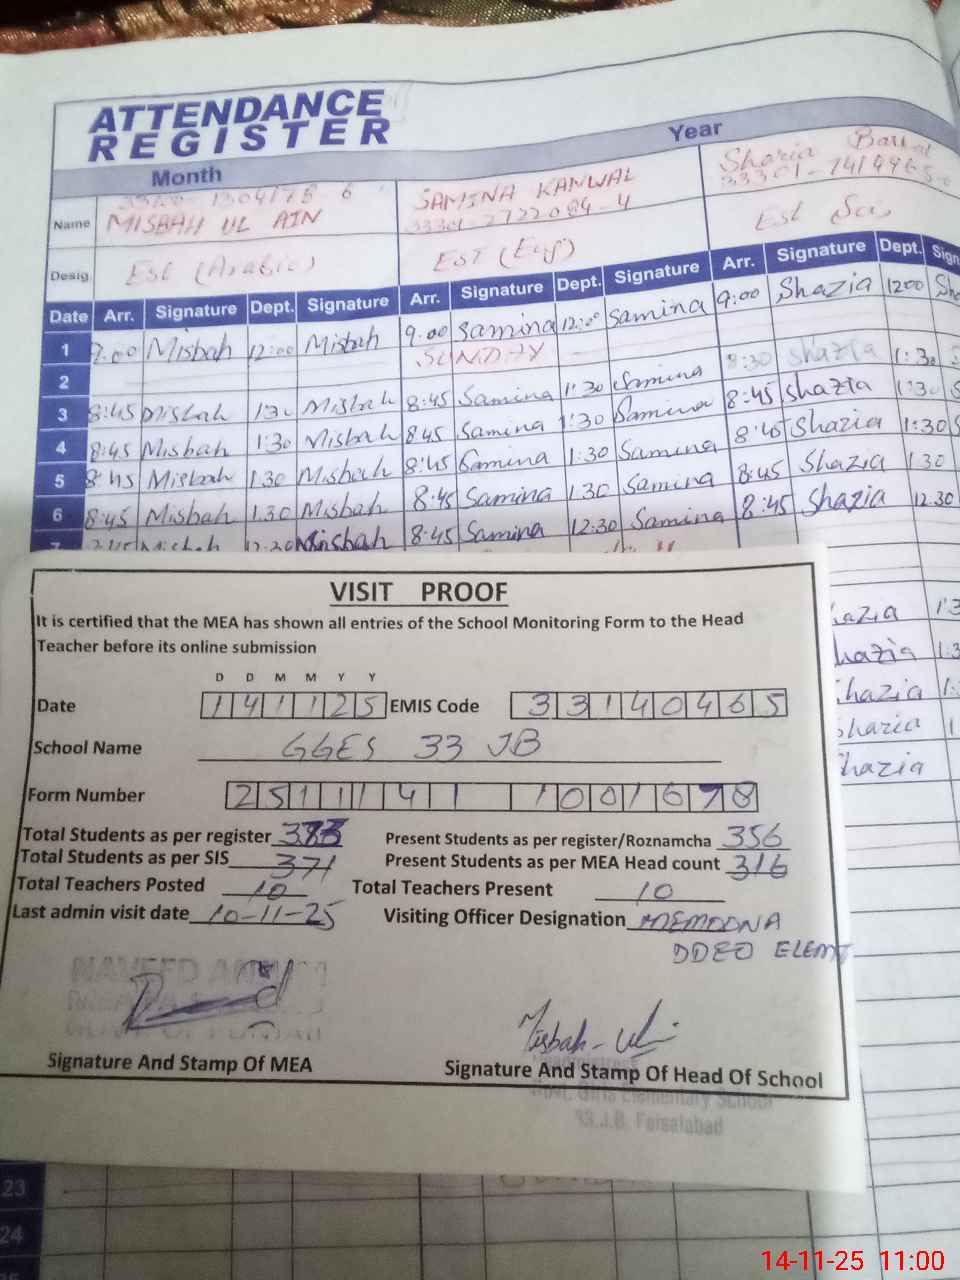 ATTENDANCE
REGISTER
Month Year
Name MISBAH UL AIN SAMINA KANWAL Shazia
Desig. Est (Arabic) EST (Eng) Est Sci
Date Arr. Signature Dept. Signature Arr. Signature Dept. Signature Arr. Signature Dept. Sign
1 9.00 Misbah 12:00 Misbah 9.00 Samina 12:00 Samina 9:00 Shazia 1200
2 SUNDAY
8:30 Shazia 1:30
3 8:45 Misbah 130 Misbah 8:45 Samina 1:30 Samina 8:45 Shazia 1:30
4 8:45 Misbah 1:30 Misbah 8:45 Samina 1:30 Samina 8:45 Shazia 1:30
5 8:45 Misbah 1.30 Misbah 8:45 Samina 1:30 Samina 8:45 Shazia 1.30
6 8:45 Misbah 1.30 Misbah 8:45 Samina 1.30 Samina 8:45 Shazia 12.30
Misbah 8:45 Samina 12:30 Samina
VISIT PROOF
It is certified that the MEA has shown all entries of the School Monitoring Form to the Head
Teacher before its online submission
D D M M Y Y
Date 141125 EMIS Code 33140465
School Name GGES 33 JB
Form Number 25111411001678
Total Students as per register 373 Present Students as per register/Roznamcha 356
Total Students as per SIS 371 Present Students as per MEA Head count 316
Total Teachers Posted 10 Total Teachers Present 10
Last admin visit date 10-11-25 Visiting Officer Designation MEMOONA
DDEO ELEMT
Misbah-ul
Signature And Stamp Of MEA Signature And Stamp Of Head Of School
Govt. Girls Elementary School
33 J.B. Faisalabad
hazia
hazia
hazia
Shazia
hazia
23
24
14-11-25 11:00